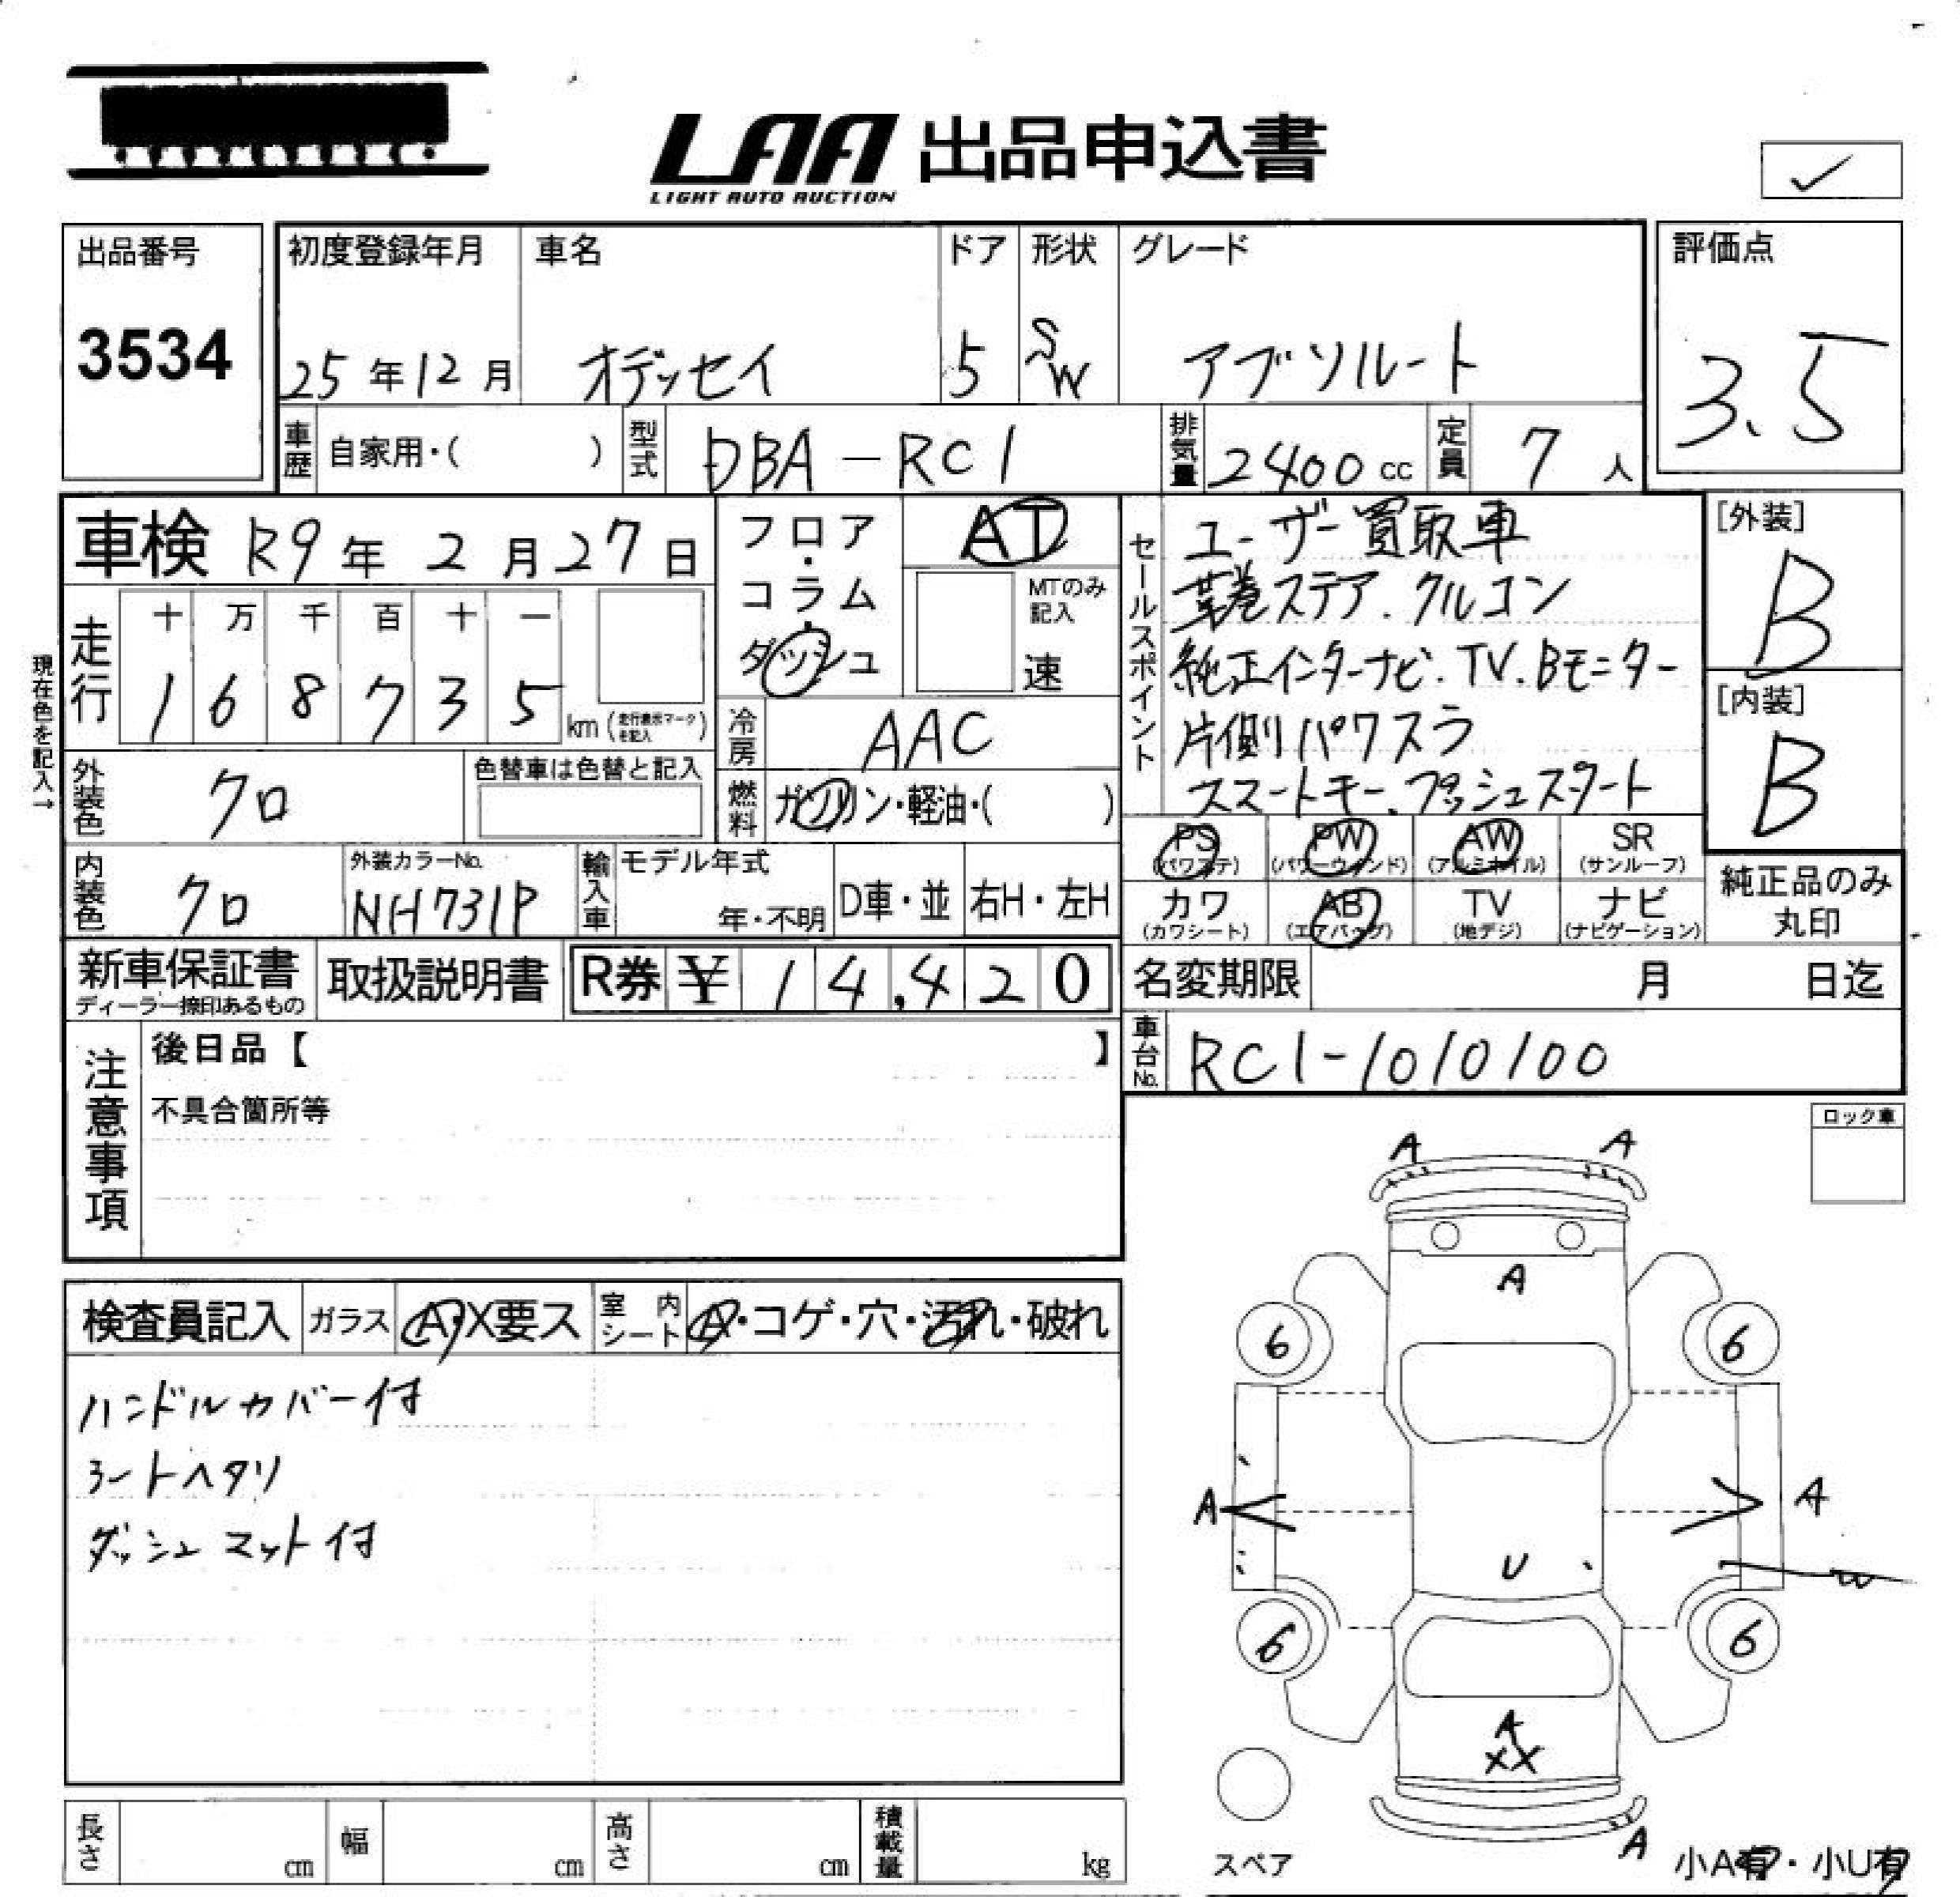 LAA 出品申込書
LIGHT AUTO AUCTION
出品番号
3534
初度登録年月
25年12月
車名
オデッセイ
ドア
5
形状
SW
グレード
アブソルート
評価点
3.5
車歴 自家用・( )
型式 DBA-RC1
排気量 2400cc
定員 7人
車検 R9年2月27日
フロア・コラム・ダッシュ
AT
MTのみ記入
速
現在色を記入→
走行
十 万 千 百 十 一
1 6 8 7 3 5 km (走行表示マークを記入)
冷房 AAC
外装色 クロ
色替車は色替と記入
燃料 ガソリン・軽油・( )
内装色 クロ
外装カラーNo.
NH731P
輸入車 モデル年式
年・不明
D車・並
右H・左H
セールスポイント
ユーザー買取車
革巻ステア.クルコン
純正インターナビ.TV.Bモニター
片側パワスラ
スマートキー.プッシュスタート
[外装]
B
[内装]
B
PS (パワステ)
PW (パワーウィンド)
AW (アルミホイル)
SR (サンルーフ)
カワ (カワシート)
AB (エアバッグ)
TV (地デジ)
ナビ (ナビゲーション)
純正品のみ丸印
新車保証書
ディーラー捺印あるもの
取扱説明書
R券 ¥ 14,420
名変期限 月 日迄
車台No. RC1-1010100
注意事項
後日品【 】
不具合箇所等
ロック車
検査員記入
ガラス A・X要ス
室内シート A・コゲ・穴・汚れ・破れ
ハンドルカバー付
シートヘタリ
ダッシュマット付
A A
A
6 6
A A
U
W
6 6
A
XX
A
スペア
小A有・小U有
長さ cm
幅 cm
高さ cm
積載量 kg